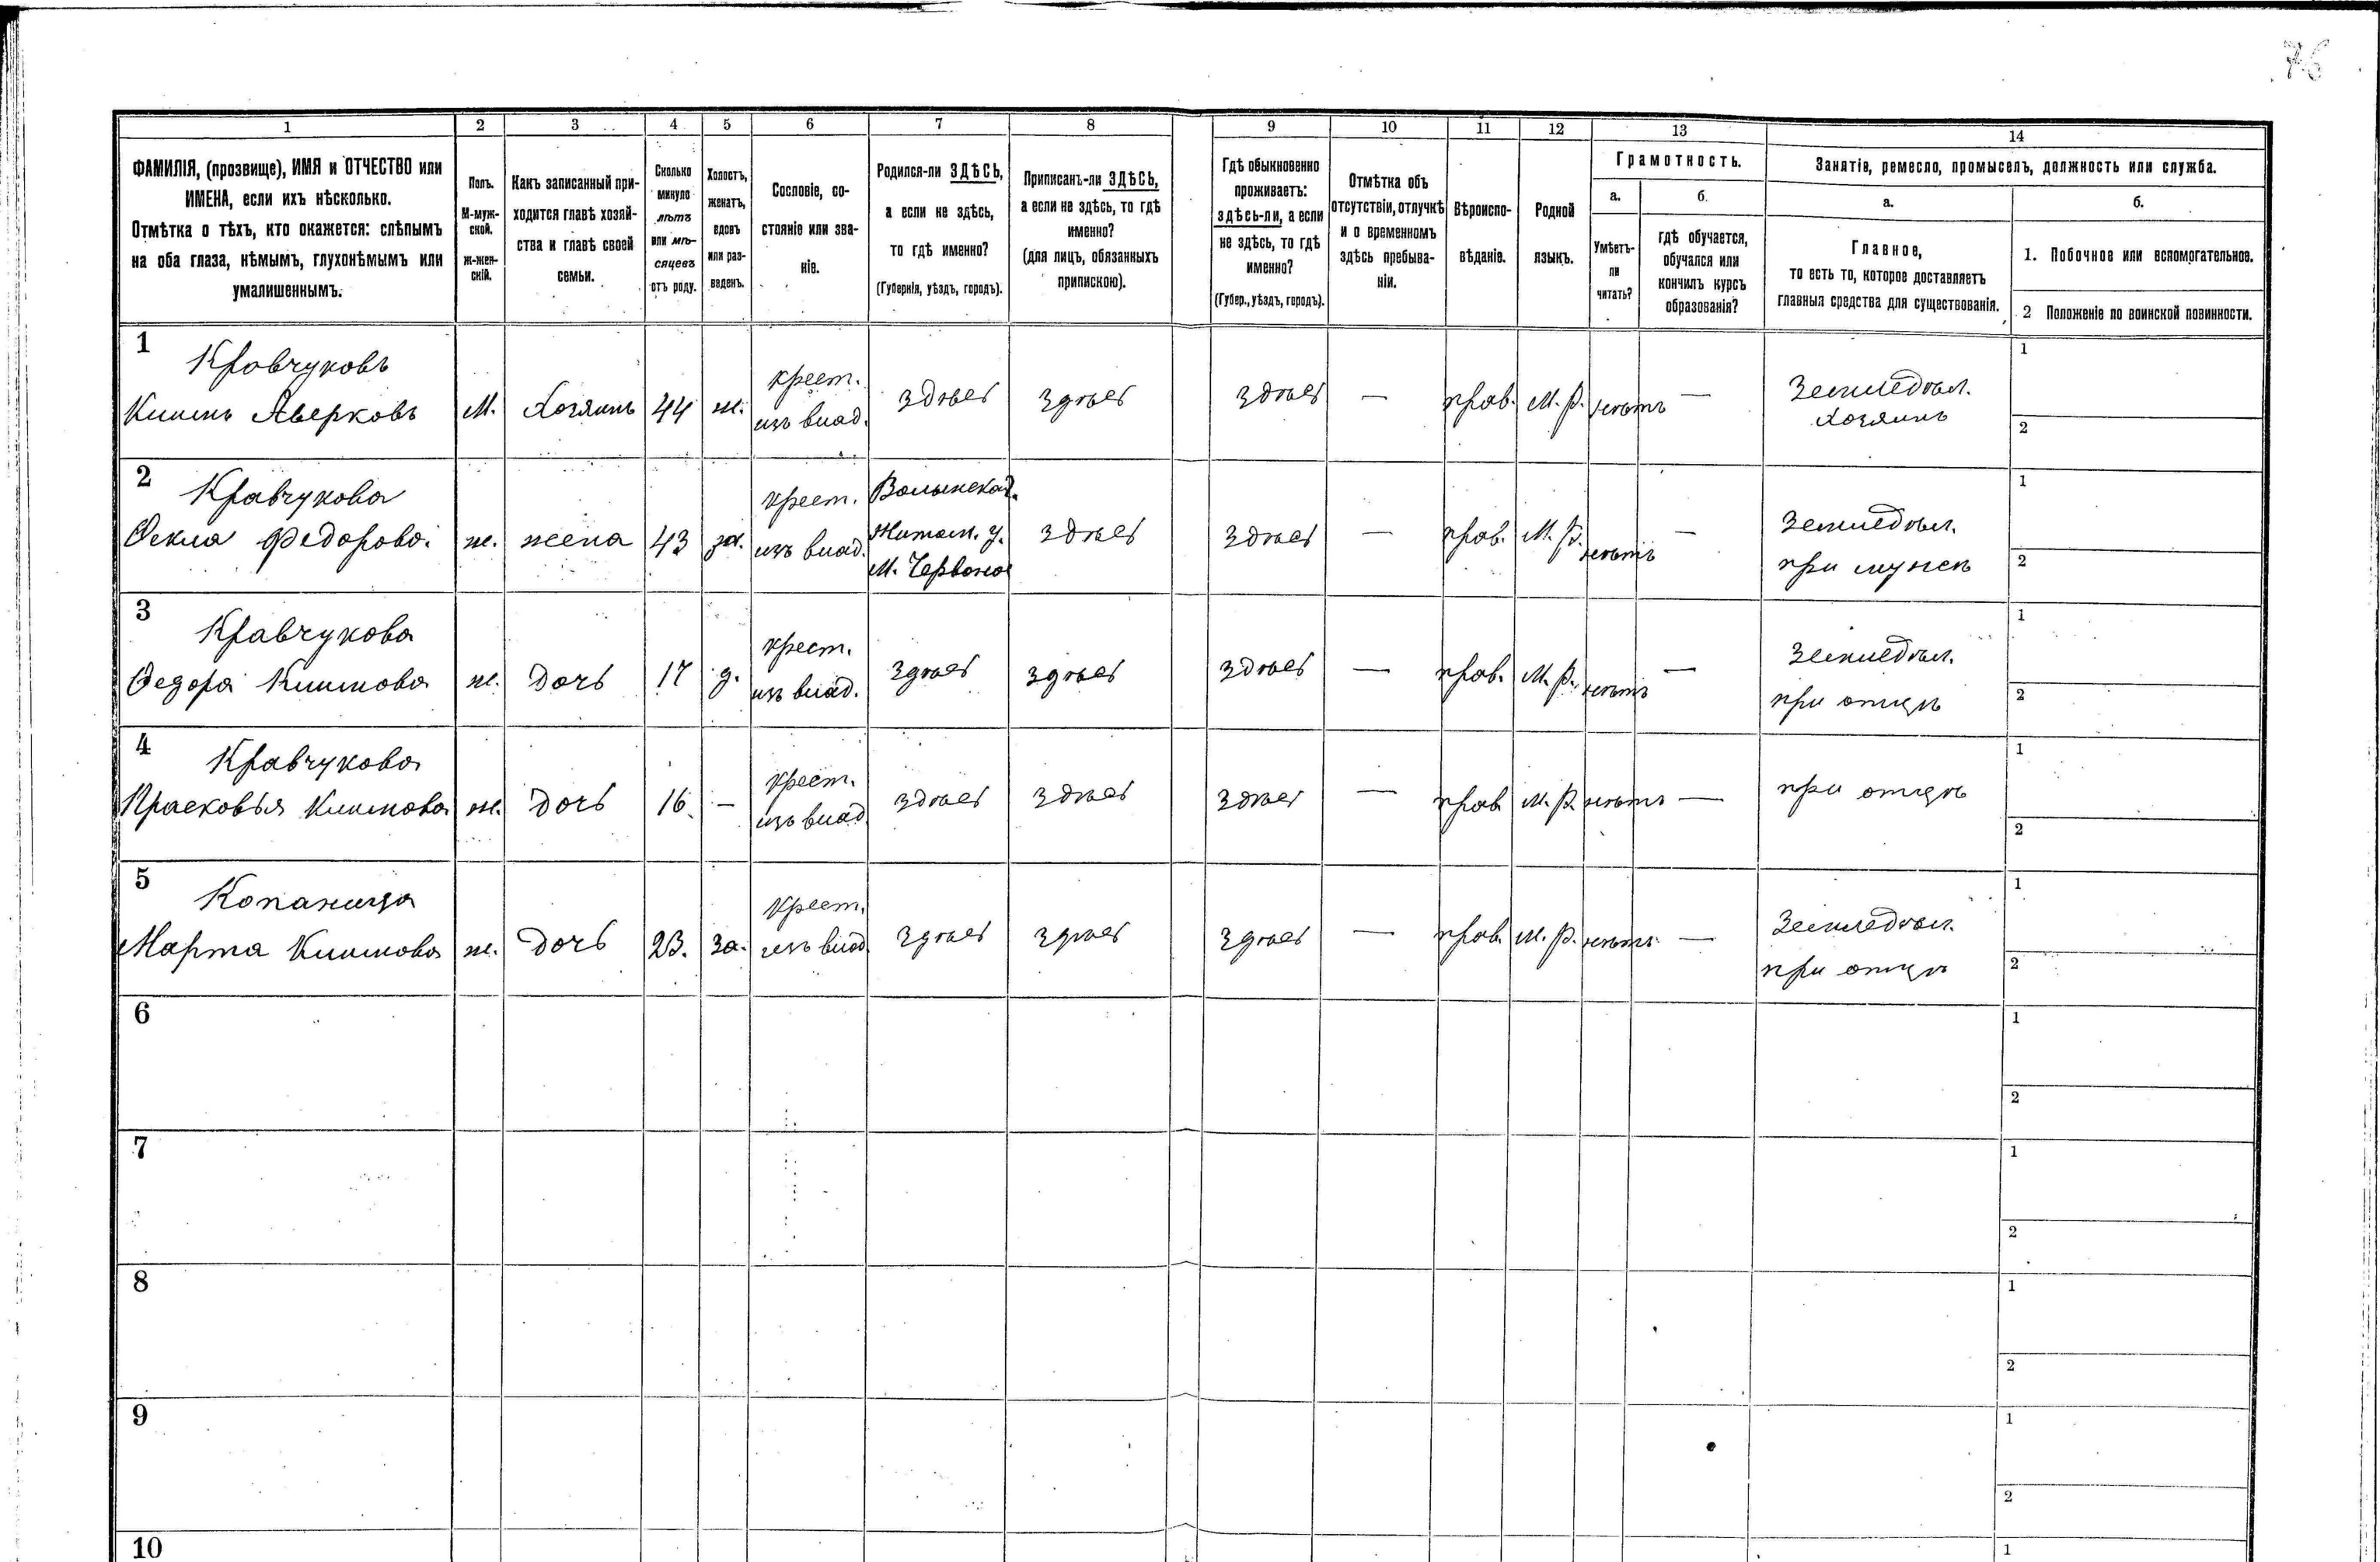 76
1 2 3 4 5 6 7 8 9 10 11 12 13 14
ФАМИЛІЯ, (прозвище), ИМЯ и ОТЧЕСТВО или
ИМЕНА, если ихъ нѣсколько.
Отмѣтка о тѣхъ, кто окажется: слѣпымъ
на оба глаза, нѣмымъ, глухонѣмымъ или
умалишеннымъ.
Полъ.
М-муж-
ской.
ж-жен-
скій.
Какъ записанный при-
ходится главѣ хозяй-
ства и главѣ своей
семьи.
Сколько
минуло
лѣтъ
или мѣ-
сяцевъ
отъ роду.
Холостъ,
женатъ,
вдовъ
или раз-
веденъ.
Сословіе, со-
стояніе или зва-
ніе.
Родился-ли ЗДѢСЬ,
а если не здѣсь,
то гдѣ именно?
(Губернія, уѣздъ, городъ).
Приписанъ-ли ЗДѢСЬ,
а если не здѣсь, то гдѣ
именно?
(для лицъ, обязанныхъ
припискою).
Гдѣ обыкновенно
проживаетъ:
здѣсь-ли, а если
не здѣсь, то гдѣ
именно?
(Губер., уѣздъ, городъ).
Отмѣтка объ
отсутствіи, отлучкѣ
и о временномъ
здѣсь пребыва-
ніи.
Вѣроиспо-
вѣданіе.
Родной
языкъ.
Грамотность.
а.
Умѣетъ-
ли
читать?
б.
гдѣ обучается,
обучался или
кончилъ курсъ
образованія?
Занятія, ремесло, промыселъ, должность или служба.
а.
Главное,
то есть то, которое доставляетъ
главныя средства для существованія.
б.
1. Побочное или вспомогательное.
2 Положеніе по воинской повинности.
1
Кравчуковъ
Климъ Аверковъ
М.
Хозяинъ
44
ж.
крест.
изъ влад.
здѣсь
здѣсь
здѣсь
—
прав.
М. Р.
нѣтъ
—
Земледѣл.
хозяинъ
1
2
2
Кравчукова
Ѳекла Федорова
ж.
жена
43
зм.
крест.
изъ влад.
Волынская.
Житом. у.
М. Червоное
здѣсь
здѣсь
—
прав.
М. Р.
нѣтъ
—
Земледѣл.
при мужѣ
1
2
3
Кравчукова
Ѳедора Климова
ж.
дочь
17
д.
крест.
изъ влад.
здѣсь
здѣсь
здѣсь
—
прав.
М. Р.
нѣтъ
—
Земледѣл.
при отцѣ
1
2
4
Кравчукова
Прасковья Климова
ж.
дочь
16.
—
крест.
изъ влад
здѣсь
здѣсь
здѣсь
—
прав
М. Р.
нѣтъ
—
при отцѣ
1
2
5
Копаница
Марта Климова
ж.
дочь
23.
за.
Крест.
изъ влад.
здѣсь
здѣсь
здѣсь
—
прав.
М. Р.
нѣтъ
—
Земледѣл.
при отцѣ
1
2
6
1
2
7
1
2
8
1
2
9
1
2
10
1